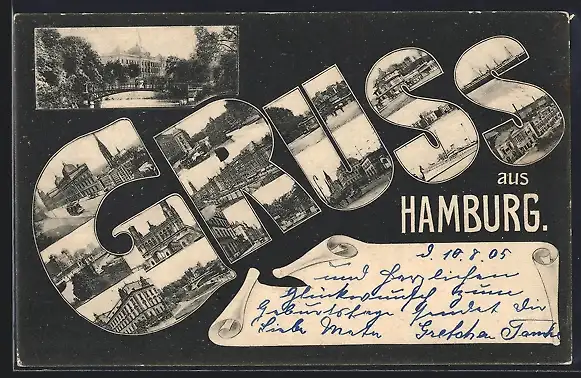 GRUSS
aus
HAMBURG.
d. 18.8.05
und herzlichen
Glückwunsch zum
Geburtstage sendet Dir
liebe Meta Gretchen